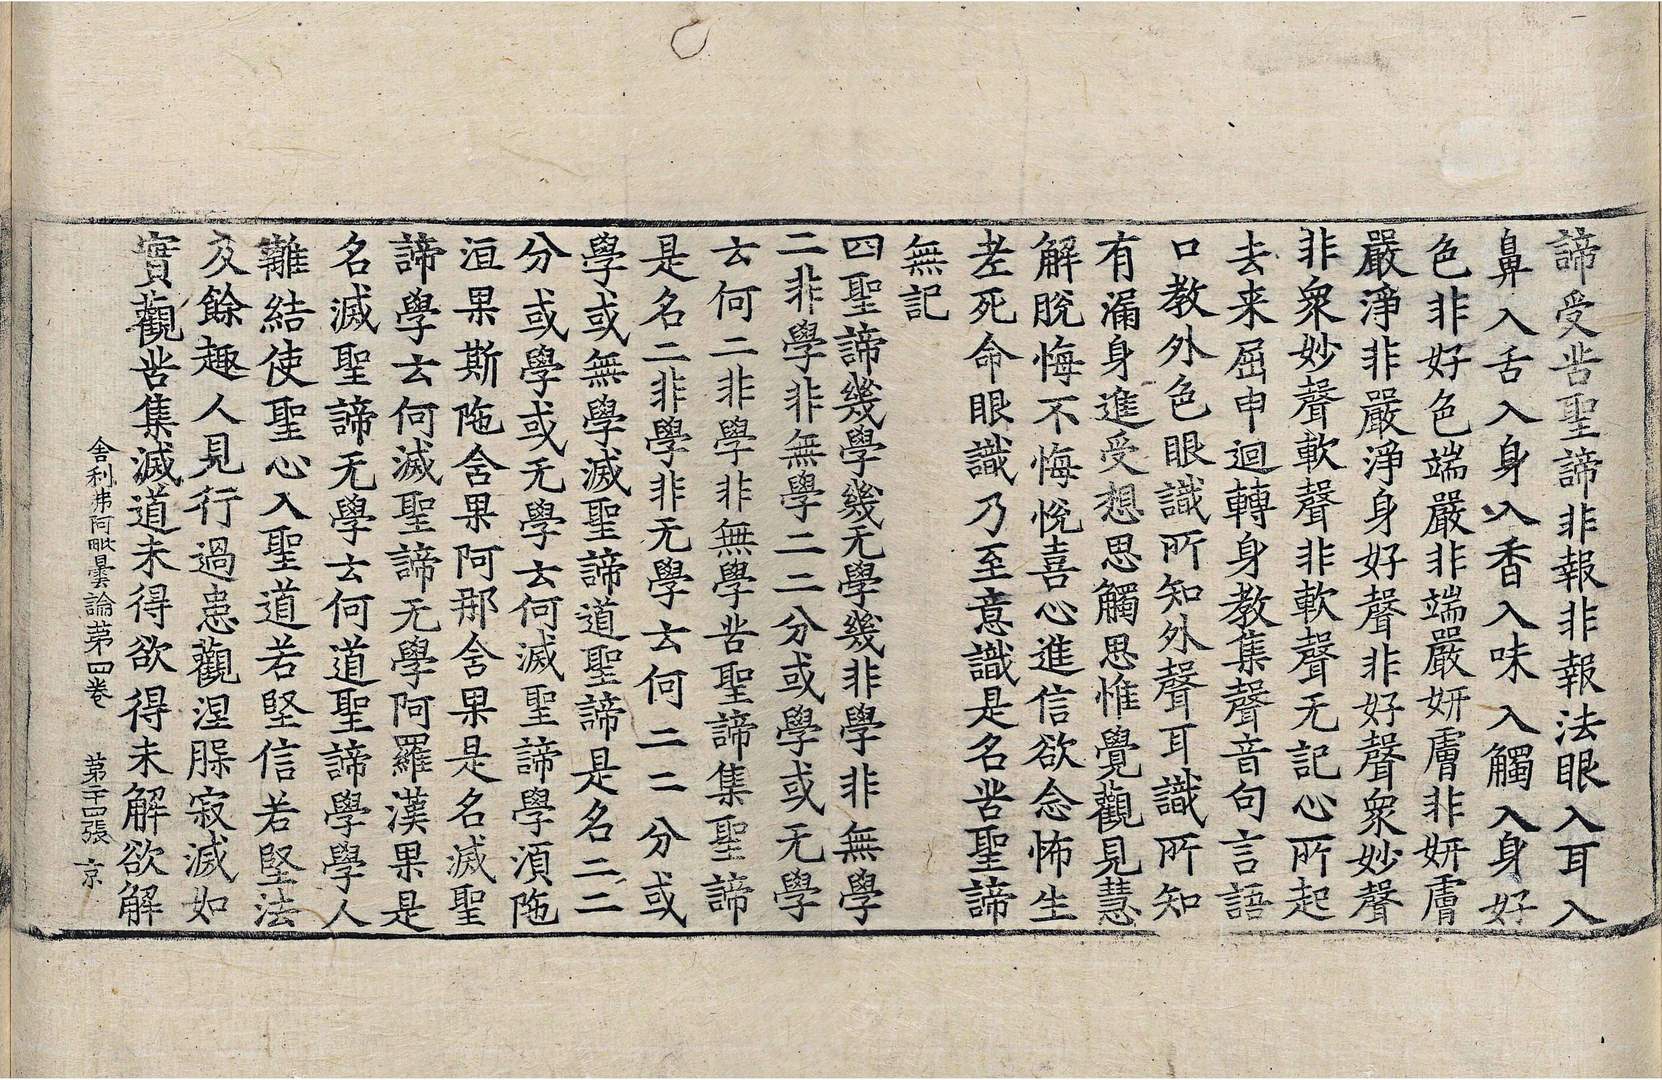 諦受苦聖諦非報非報法眼入耳入
鼻入舌入身入香入味入觸入身好
色非好色端嚴非端嚴妍膚非妍膚
嚴淨非嚴淨身好聲非好聲衆妙聲
非衆妙聲軟聲非軟聲无記心所起
去来屈申迴轉身教集聲音句言語
口教外色眼識所知外聲耳識所知
有漏身進受想思觸思惟覺觀見慧
解脫悔不悔悅喜心進信欲念怖生
老死命眼識乃至意識是名苦聖諦
無記
四聖諦幾學幾无學幾非學非無學
二非學非無學二二分或學或无學
云何二非學非無學苦聖諦集聖諦
是名二非學非无學云何二二分或
學或無學滅聖諦道聖諦是名二二
分或學或无學云何滅聖諦學須陁
洹果斯陁含果阿那含果是名滅聖
諦學云何滅聖諦无學阿羅漢果是
名滅聖諦无學云何道聖諦學學人
離結使聖心入聖道若堅信若堅法
及餘趣人見行過患觀涅槃寂滅如
實觀苦集滅道未得欲得未解欲解
舍利弗阿毗曇論苐四卷　苐二十四張　京